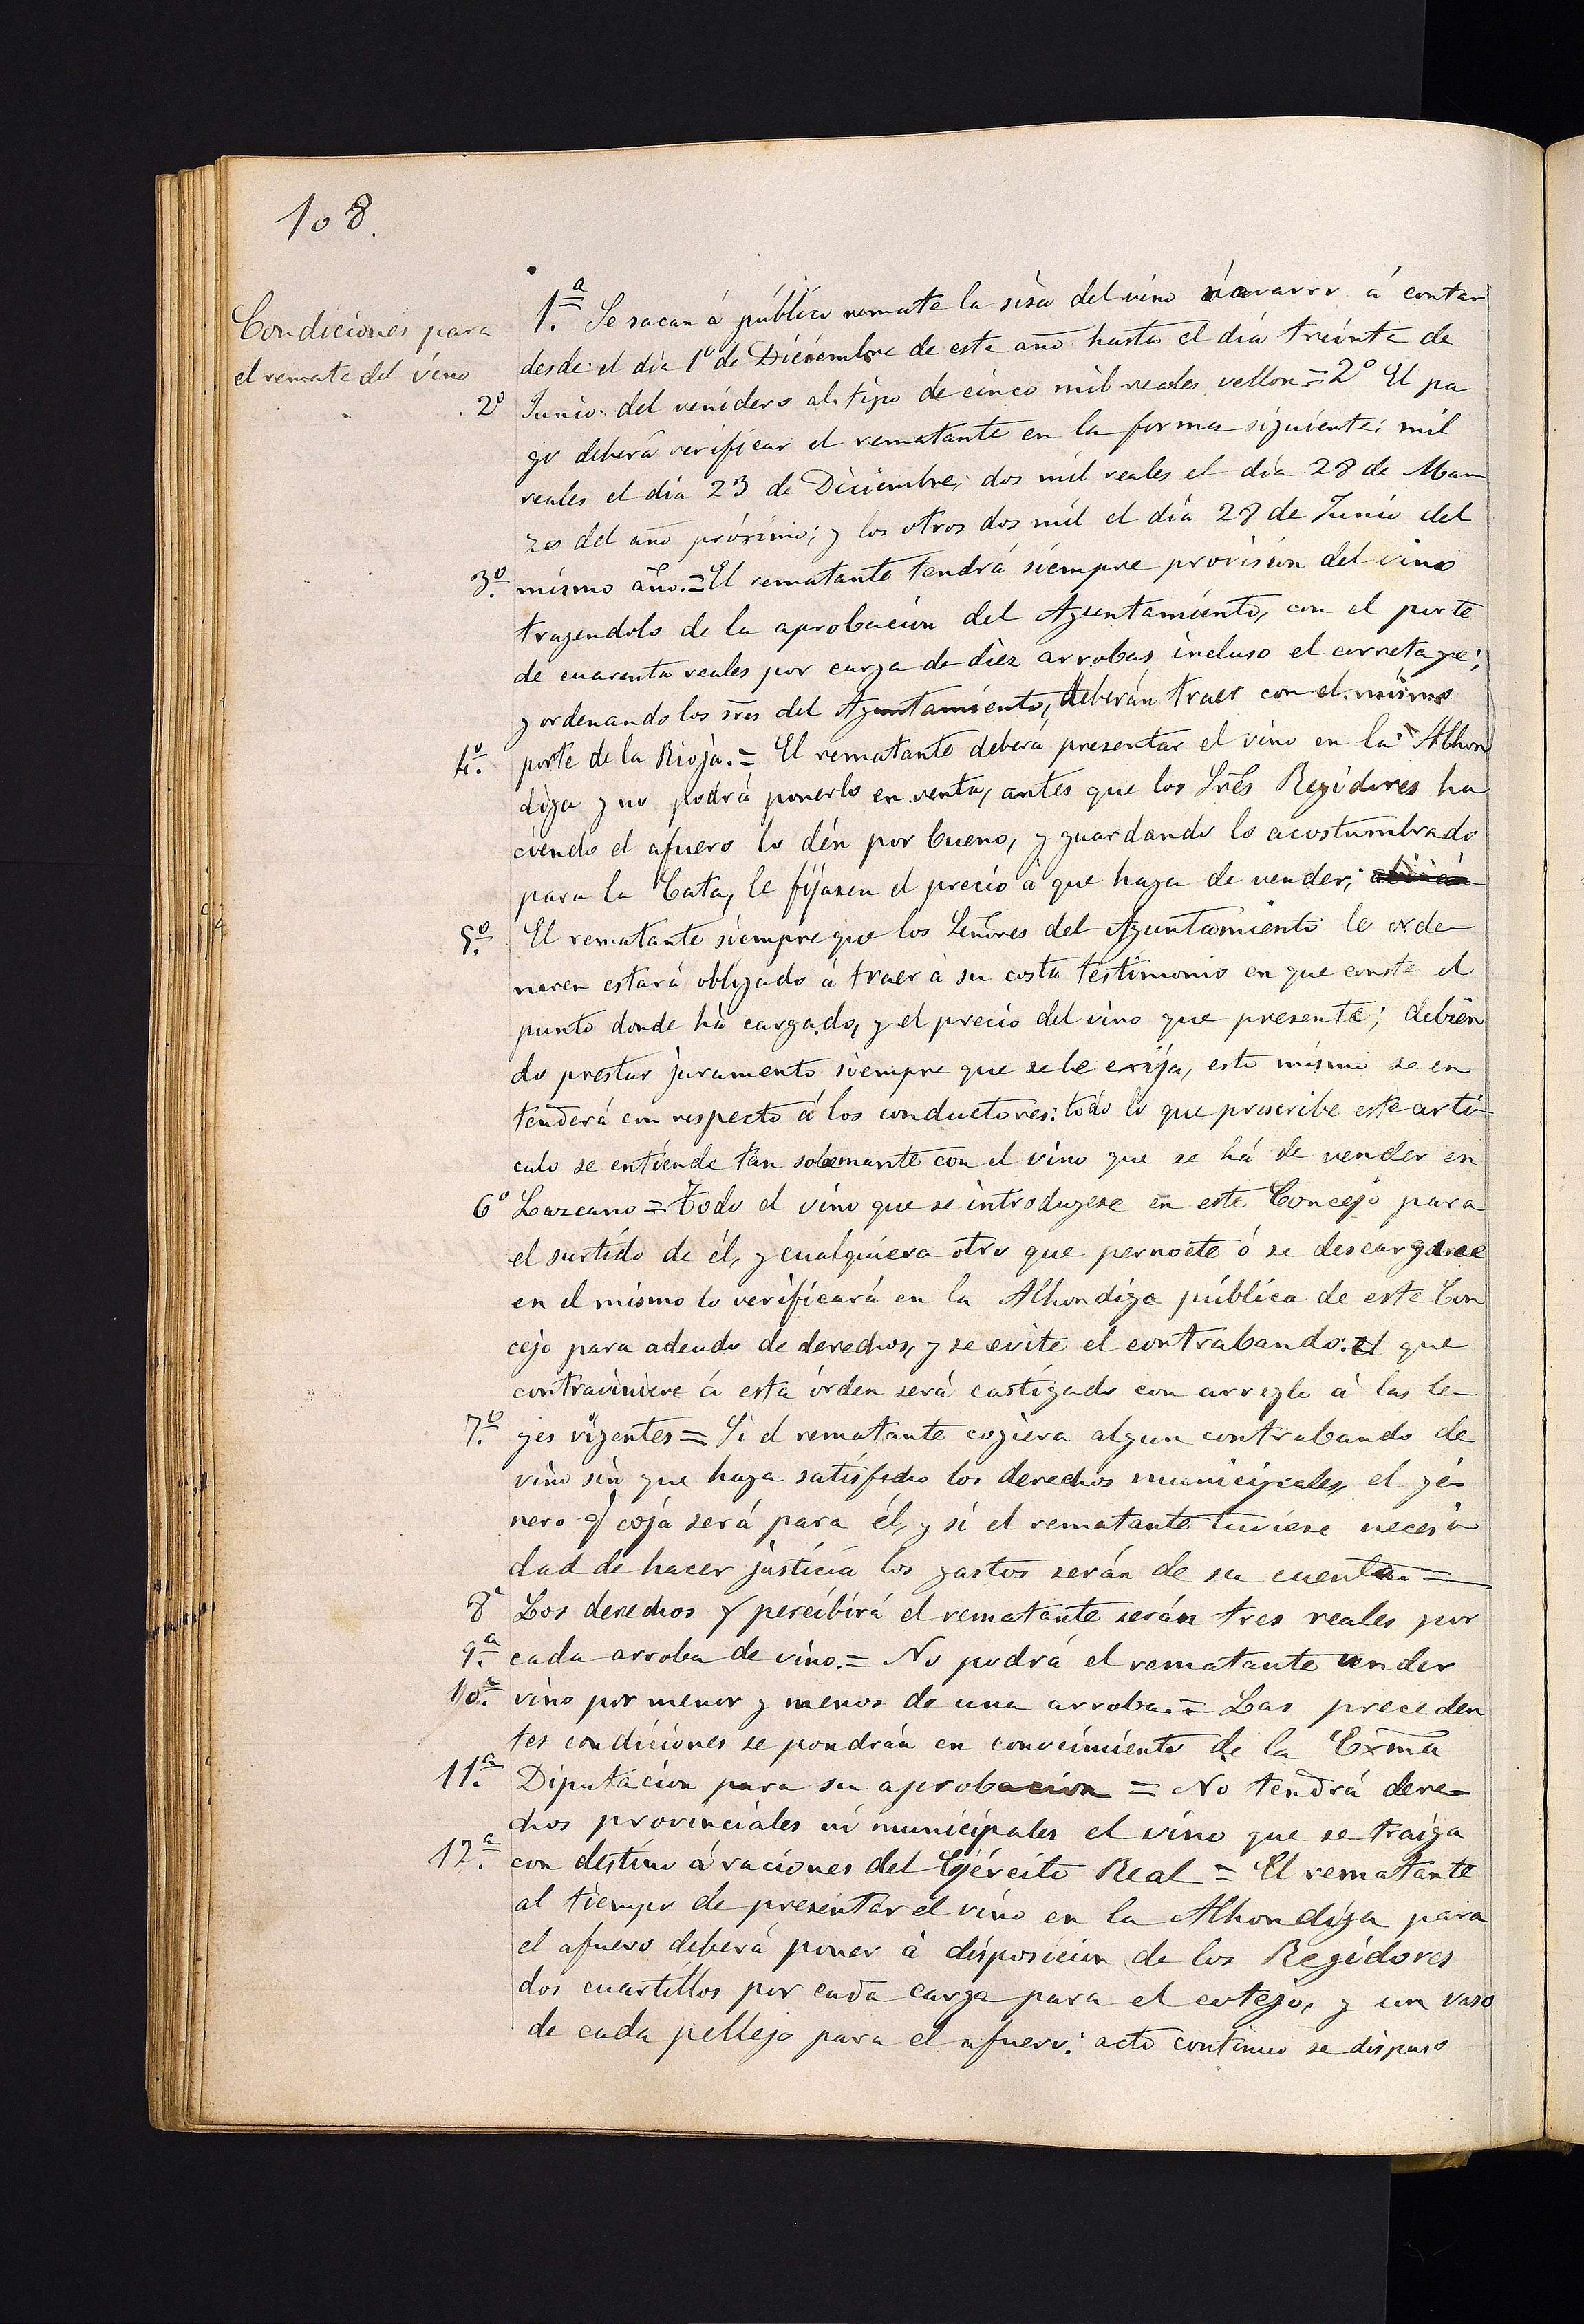 108.
Condiciones para
el remate del vino
1.ª Se sacan á público remate la sisa del vino navarro á contar
desde el dia 1º de Dicembre de este año hasta el dia treinta de
2º Junio del venidero al tipo de cinco mil reales vellon = 2º El pa
go deberá verificar el rematante en la forma siguiente: mil
reales el dia 23 de Diciembre; dos mil reales el dia 28 de Mar
zo del año próximo; y los otros dos mil el dia 28 de Junio del
3.º mismo año. = El rematante tendrá siempre provision del vino
trayendolo de la aprobacion del Ayuntamiento, con el porte
de cuarenta reales por carga de diez arrobas incluso el corretage;
y ordenando los sres del Ayuntamiento, deberán traer con el mismo
4.º porte de la Rioja. = El rematante deberá presentar el vino en la Alhon
diga y no podrá ponerlo en venta, antes que los Sres Regidores ha
ciendo el afuero lo dén por bueno, y guardando lo acostumbrado
para la Cata, le fijasen el precio á que haya de vender;
5.º El rematante siempre que los Señores del Ayuntamiento le orde-
naren estará obligado á traer á su costa testimonio en que conste el
punto donde há cargado, y el precio del vino que presente; debien
do prestar juramento siempre que se le exija, esto mismo se en
tenderá con respecto á los conductores: todo lo que prescribe este arti-
culo se entiende tan solamante con el vino que se há de vender en
6º Lazcano = Todo el vino que se introdugese en este Concejo para
el surtido de él, y cualquiera otro que pernocte ó se descargare
en el mismo lo verificará en la Alhondiga pública de este Con
cejo para adeudo de derechos, y se evite el contrabando: el que
contraviniere á esta órden será castigado con arreglo á las le-
7.º yes vigentes = Si el rematante cogiera algun contrabando de
vino sin que haya satisfecho los derechos municipales, el gé-
nero q coja será para él, y si el rematante tuviese necesi
dad de hacer justicia los gastos serán de su cuenta. =
8ª Los derechos q percibirá el rematante serán tres reales por
9.ª cada arroba de vino. = No podrá el rematante vender
10.ª vino por menor y menos de una arroba. = Las preceden
tes condiciones se pondrán en conocimiento de la Exma
11.ª Diputacion para su aprobacion = No tendrá dere-
chos provinciales ni municipales el vino que se traiga
12.ª con destino á raciones del Ejército Real = El rematante
al tiempo de presentar el vino en la Alhondiga para
el afuero deberá poner á disposicion de los Regidores
dos cuartillos por cada carga para el cotejo, y un vaso
de cada pellejo para el afuero: acto continuo se dispuso